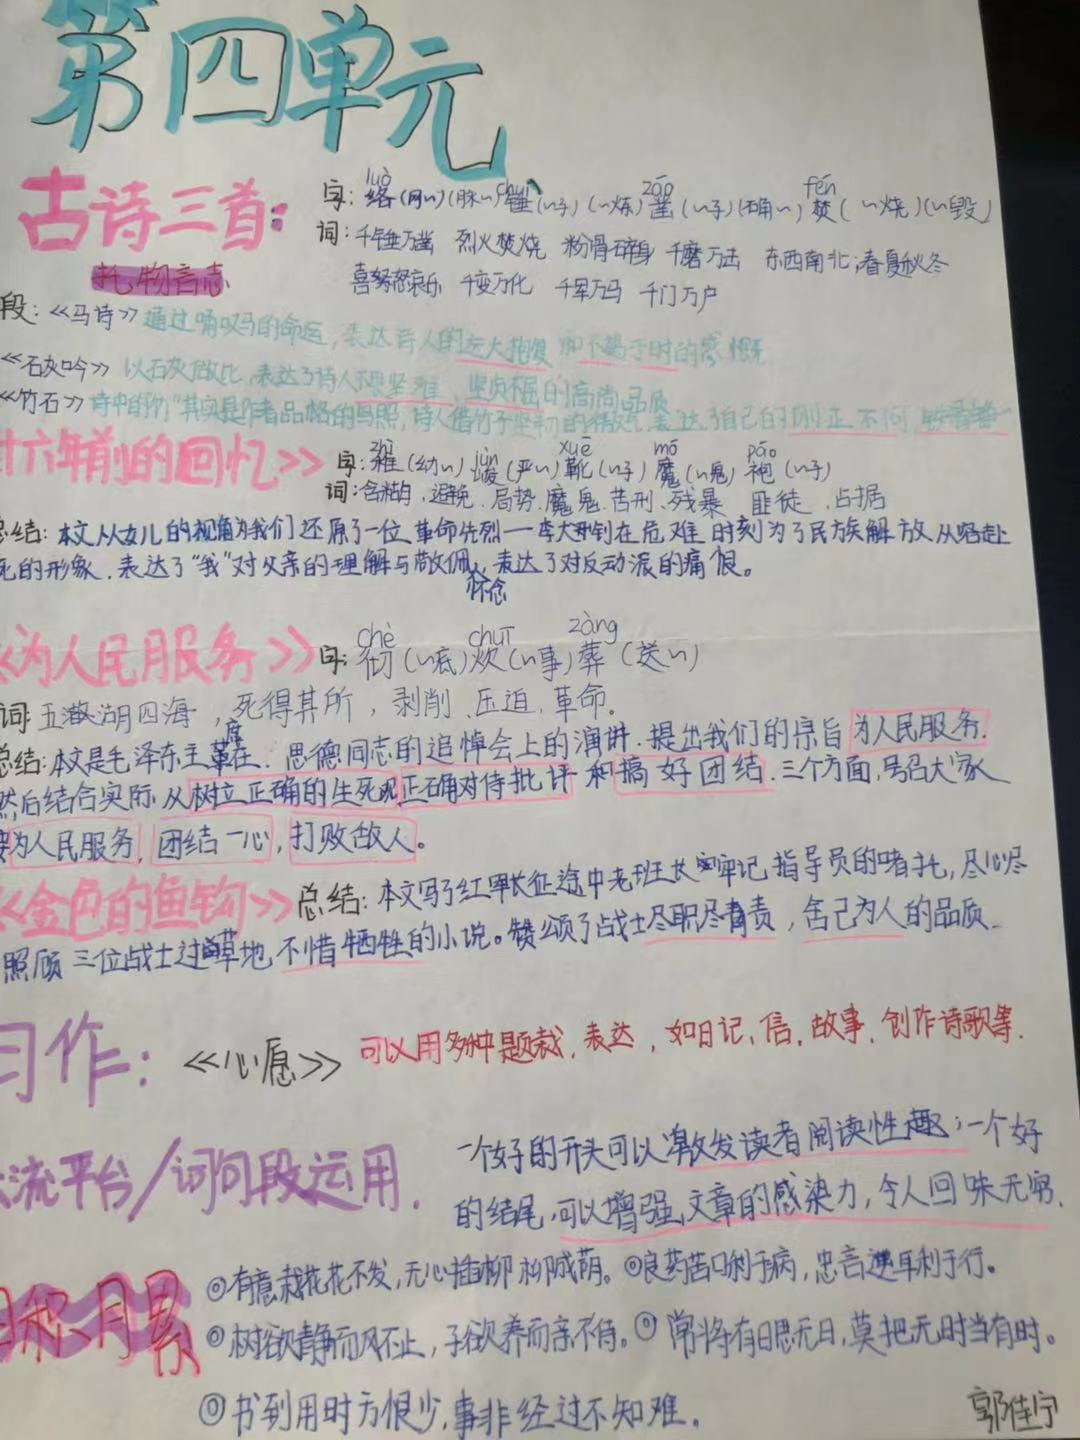 第四单元
古诗三首：
托物言志
字：络(网~)(脉~)锤(~子)(~炼)凿(~子)(确~)焚(~烧)(~毁)
luò chuí záo fén
词：千锤万凿 烈火焚烧 粉骨碎身 千磨万击 东西南北；春夏秋冬
喜努怒哀乐 千变万化 千军万马 千门万户
段：《马诗》通过 马的命运，表达诗人的远大抱负和不遇于时的感慨
《石灰吟》以石灰做比，表达了诗人不畏艰难、坚贞不屈的高尚品质
《竹石》诗中的竹"其实是作者品格的写照，诗人借竹子坚韧的 表达了自己的刚正不阿
十六年前的回忆》
字：稚(幼~)峻(严~)靴(~子)魔(~鬼)袍(~子)
zhì jùn xuē mó páo
词：含糊、避免、局势、魔鬼、苦刑、残暴 匪徒、占据
总结：本文从女儿的视角为我们还原了一位革命先烈一李大钊在危难时刻为了民族解放从容赴
死的形象，表达了"我"对父亲的理解与敬佩怀念，表达了对反动派的痛恨。
《为人民服务》
字：彻(~底)炊(~事)葬(送~)
chè chuī zàng
词：五 湖四海，死得其所，剥削、压迫、革命．
总结：本文是毛泽东主席在．思德同志的追悼会上的演讲．提出我们的宗旨为人民服务．
然后结合实际从树立正确的生死观正确对待批评和搞好团结．三个方面，号召大家
为人民服务，团结一心，打败敌人。
《金色的鱼钩》总结：本文写了红军长征途中老班长牢记指导员的嘱托，尽心尽
照顾三位战士过草地，不惜牺牲的小说。赞颂了战士尽职尽责，舍己为人的品质．
习作：《心愿》可以用多种题裁，表达，如日记、信，故事，创作诗歌等．
流平台/词句段运用．
一个好的开头可以激发读者阅读性趣；一个好
的结尾，可以增强文章的感染力，令人回味无穷．
日积月累
◎有意栽花花不发，无心插柳柳成荫。◎良药苦口利于病，忠言逆耳利于行。
◎树欲静而风不止，子欲养而亲不待。◎常将有日思无日，莫把无时当有时。
◎书到用时方恨少，事非经过不知难。
郭佳宁